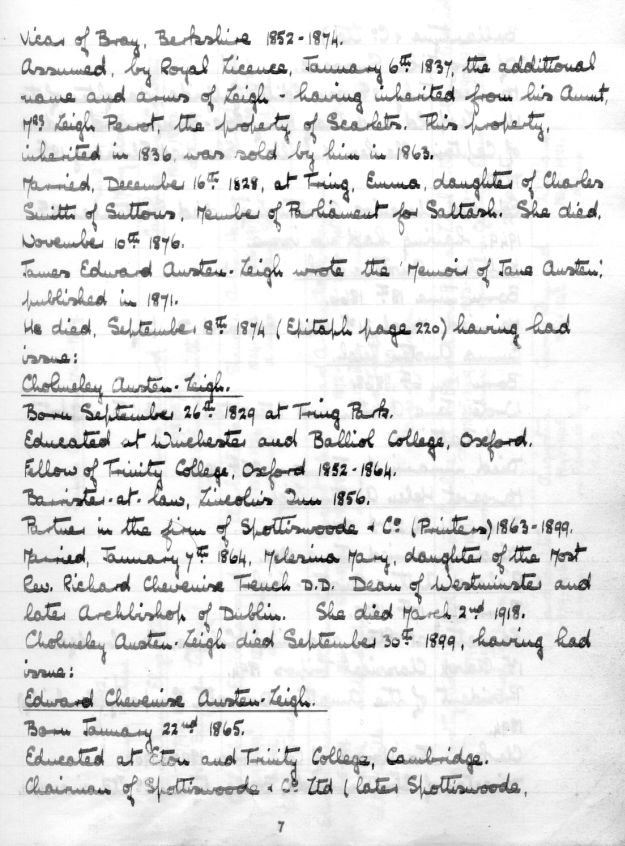 Vicar of Bray, Berkshire 1852-1874.
Assumed, by Royal Licence, January 6th 1837, the additional
name and arms of Leigh - having inherited from his Aunt,
Mrs Leigh Perrot, the property of Scarlets. This property,
inherited in 1836, was sold by him in 1863.
Married, December 16th 1828, at Tring, Emma, daughter of Charles
Smith of Suttons, Member of Parliament for Saltash. She died,
November 10th 1876.
James Edward Austen-Leigh wrote the 'Memoir of Jane Austen',
published in 1871.
He died, September 8th 1874 (Epitaph page 220) having had
issue:
Cholmeley Austen-Leigh.
Born September 26th 1829 at Tring Park.
Educated at Winchester and Balliol College, Oxford.
Fellow of Trinity College, Oxford 1852-1864.
Barrister-at-law, Lincoln's Inn 1856.
Partner in the firm of Spottiswoode & Co (Printers) 1863-1899.
Married, January 7th 1864, Melesina Mary, daughter of the Most
Rev. Richard Chevenix Trench D.D. Dean of Westminster and
later Archbishop of Dublin. She died March 2nd 1918.
Cholmeley Austen-Leigh died September 30th 1899, having had
issue:
Edward Chevenix Austen-Leigh.
Born January 22nd 1865.
Educated at Eton and Trinity College, Cambridge.
Chairman of Spottiswoode & Co Ltd (later Spottiswoode,
7